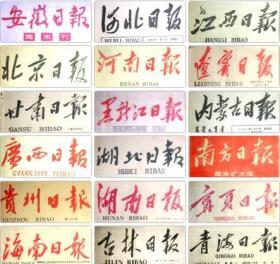 安徽日報
周末刊
河北日報
HEBEI RIBAO
江西日報
JIANGXI RIBAO
北京日報
河南日報
HENAN RIBAO
遼寧日報
LIAONING RIBAO
甘肃日報
GANSU RIBAO
黑龍江日報
内蒙古日報
廣西日報
GVANGJSIH YIZBAO
湖北日報
HUBEI RIBAO
南方日報
周末扩大版
貴州日報
GUIZHOU RIBAO
湖南日報
HUNAN RIBAO
寧夏日報
NINGXIA RIBAO
海南日報
HAINAN RIBAO
吉林日報
JILIN RIBAO
青海日報
QINGHAI RIBAO